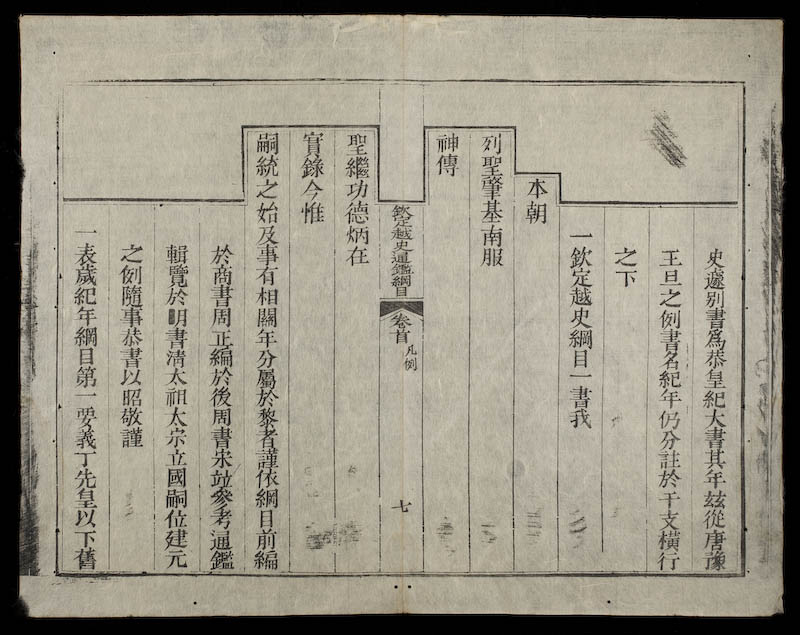 史遽别書爲恭皇紀大書其年茲從唐豫
王旦之例書名紀年仍分註於干支橫行
之下
一欽定越史綱目一書我
本朝
列聖肇基南服
神傳
欽定越史通鑑綱目 卷首 凡例 七
聖繼功德炳在
寔錄今惟
嗣統之始及事有相關年分屬於黎者謹依綱目前編
於商書周正編於後周書宋竝參考通鑑
輯覽於明書清太祖太宗立國嗣位建元
之例隨事恭書以昭敬謹
一表歲紀年綱目第一要義丁先皇以下舊